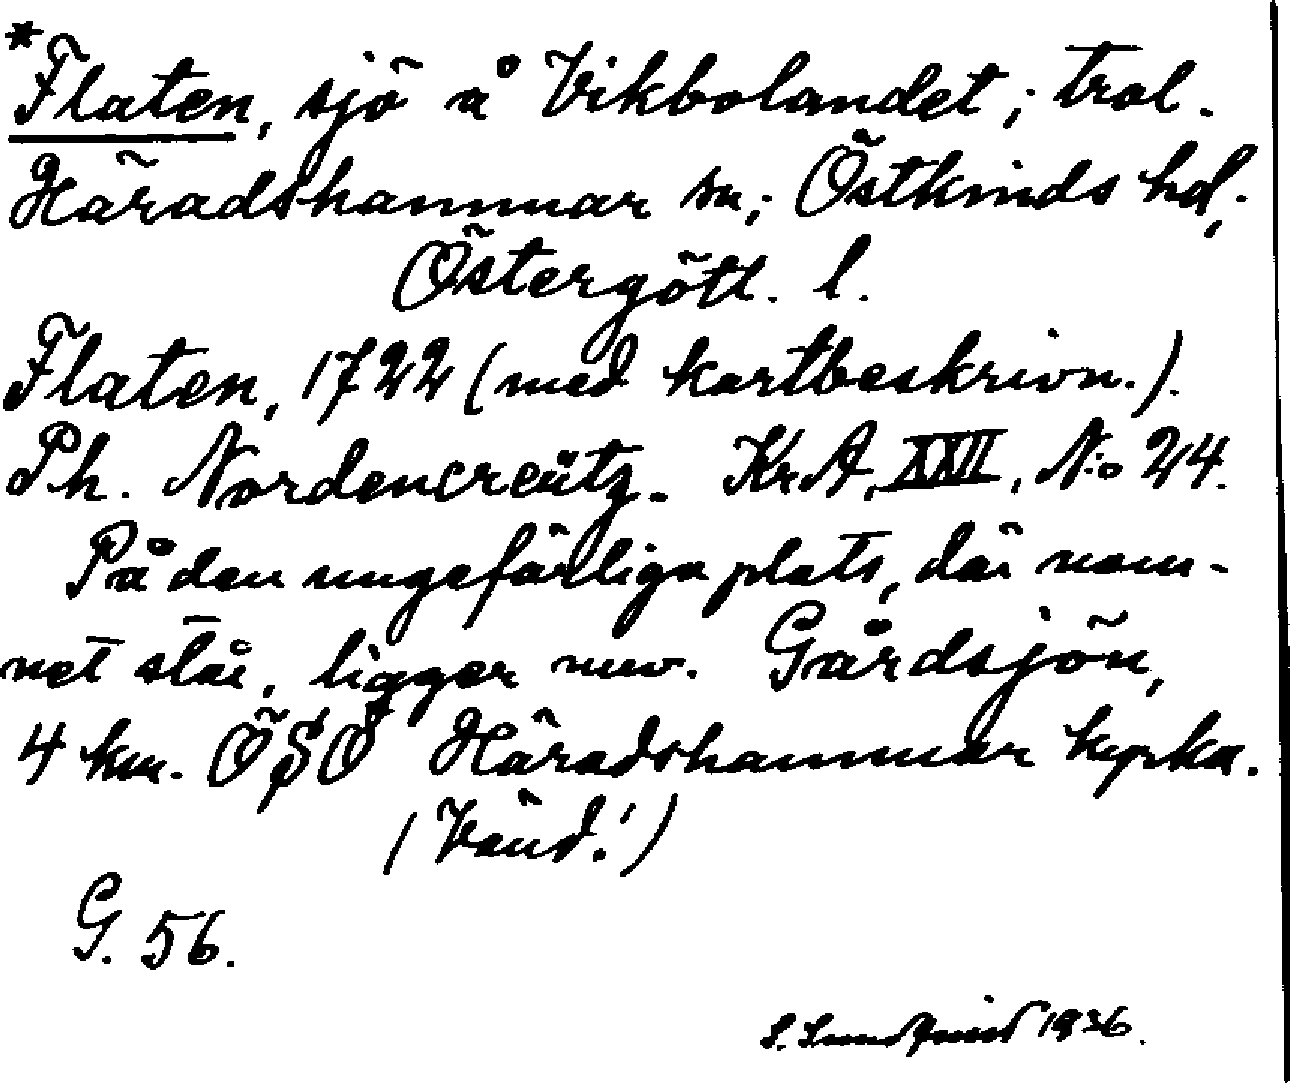 *Flaten, sjö å Vikbolandet; trol.
Häradshammar sn; Östkinds hd,
Östergötl. l.
Flaten, 1722 (med kartbeskrivn.).
Ph. Nordencreütz. Kr.A, XXII, N:o 24.
På den ungefärliga plats, där nam-
net står, ligger nuv. Gårdsjön,
4 km. ÖSÖ Häradshammar kyrka.
(Vänd!)
G. 56.
S. Lundqvist 1936.